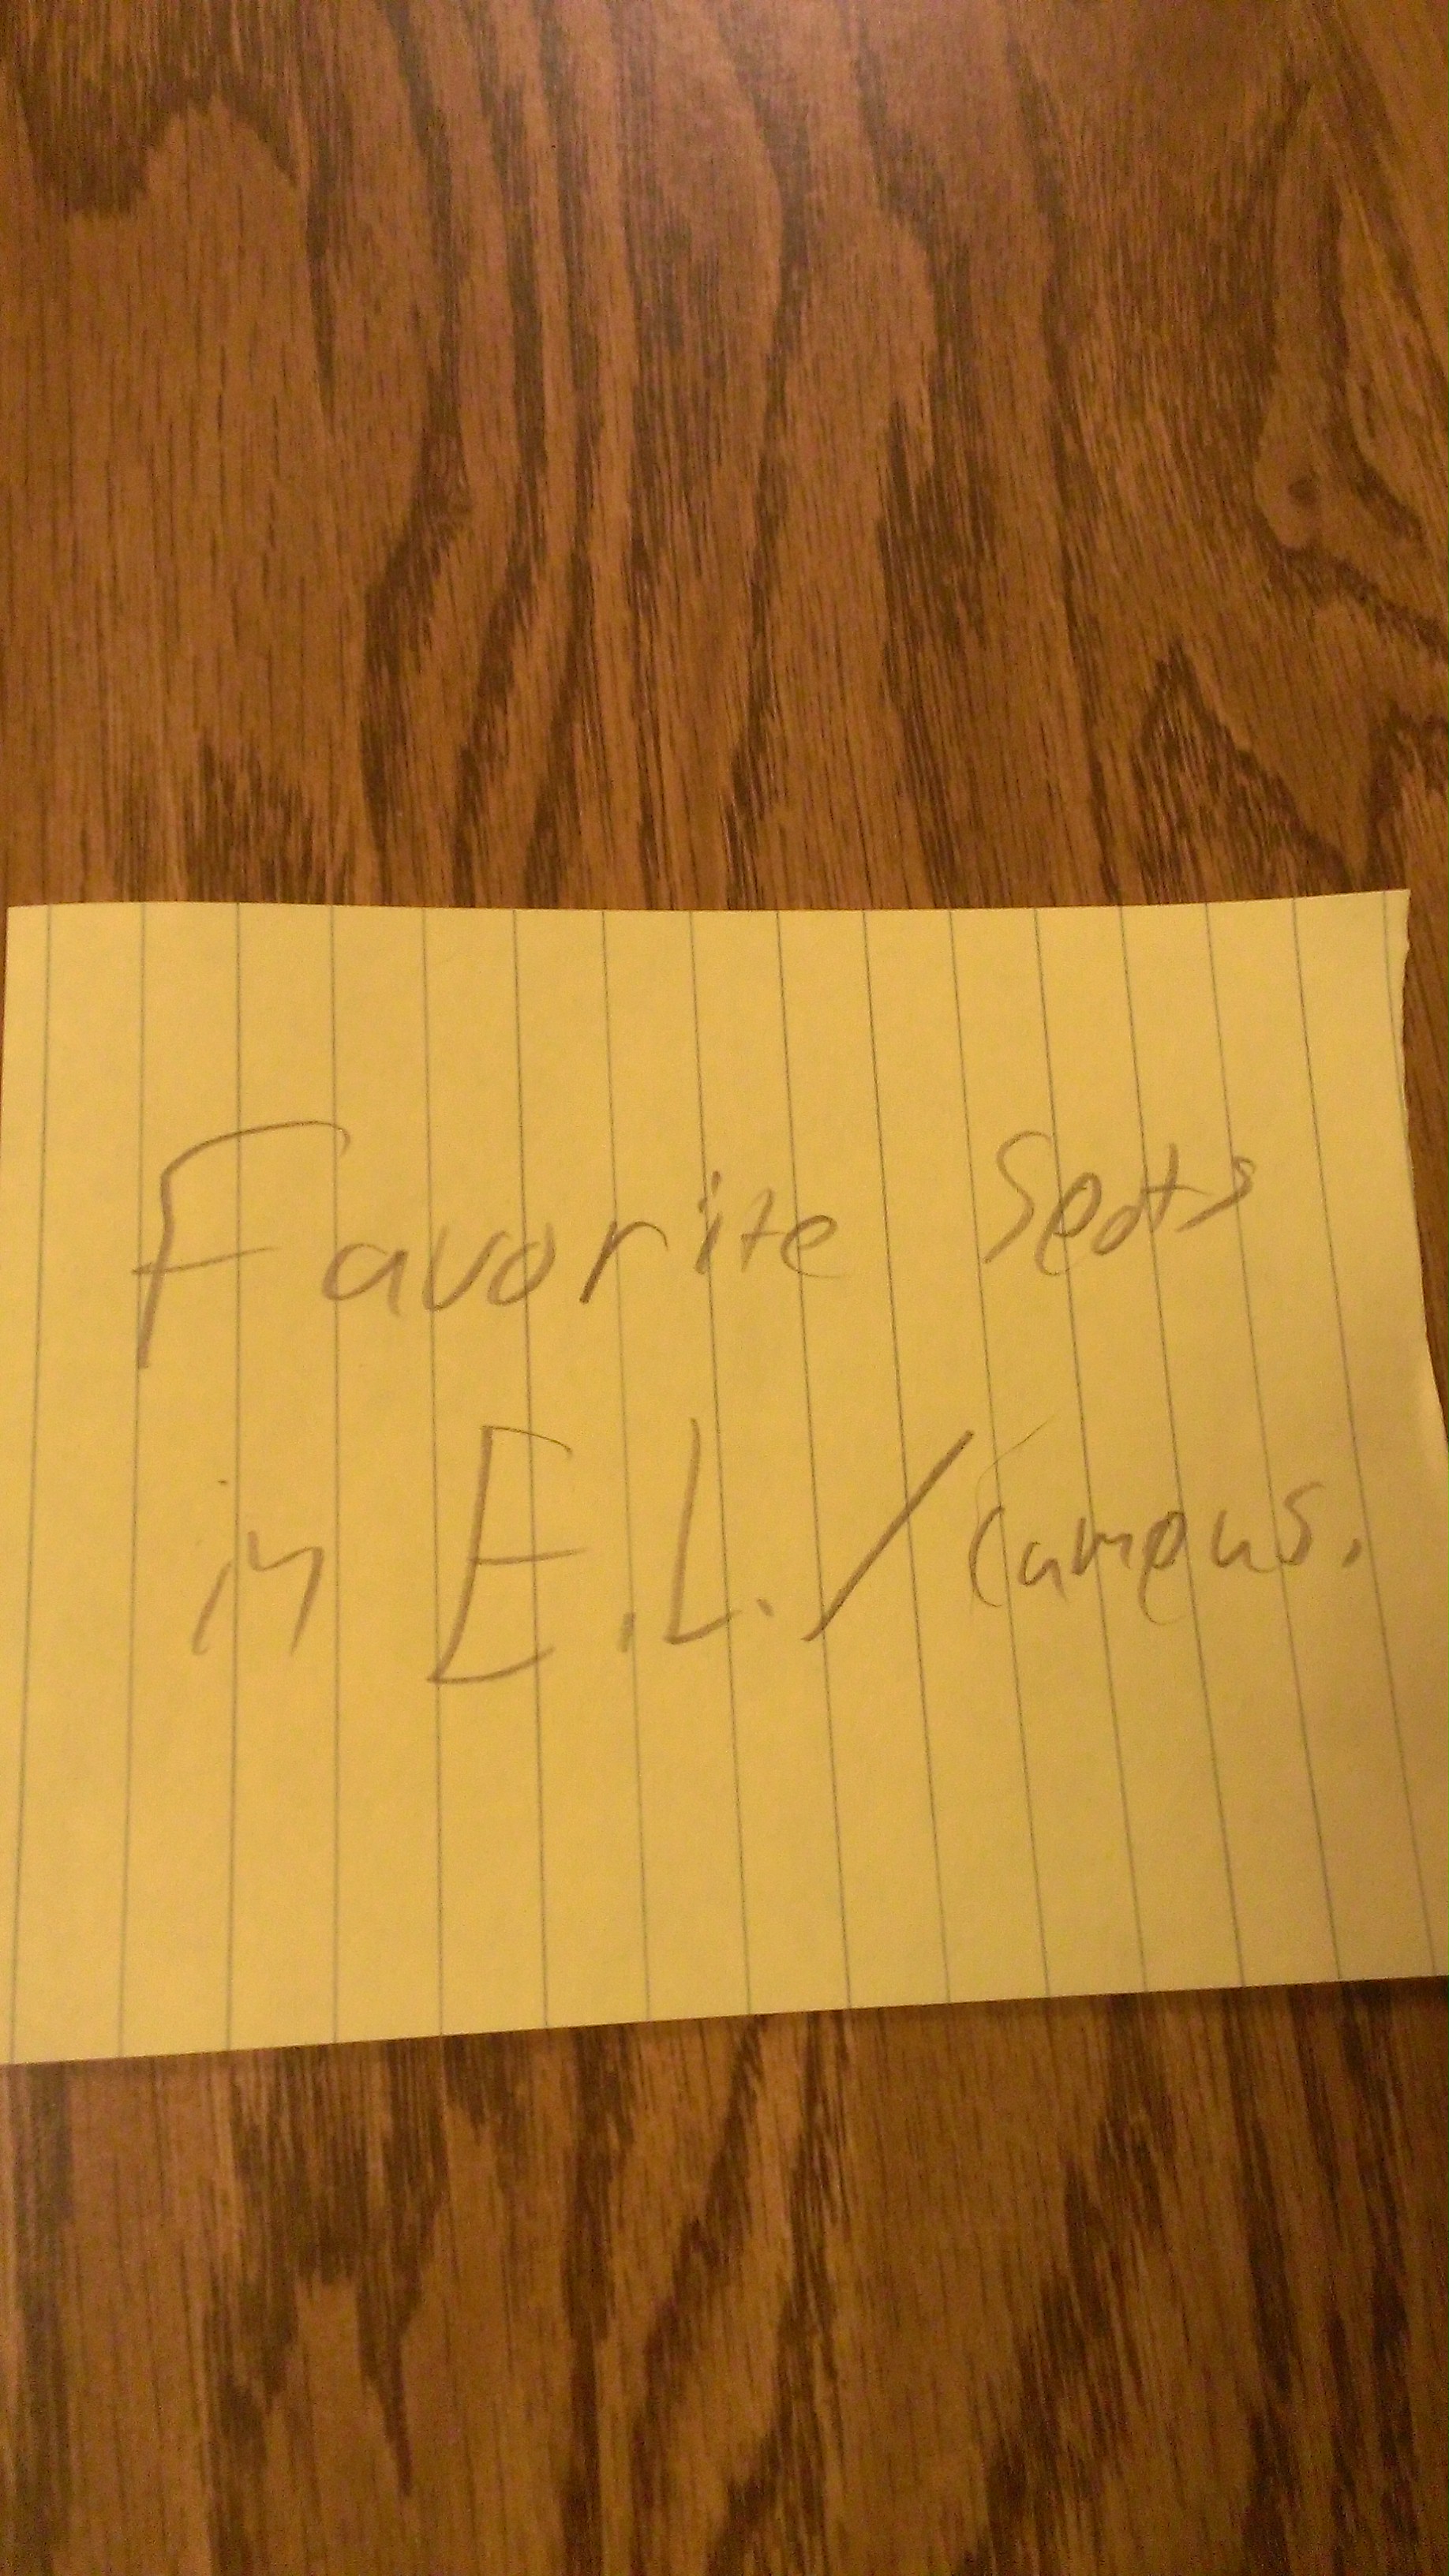 Favorite Seats
in E.L./campus.